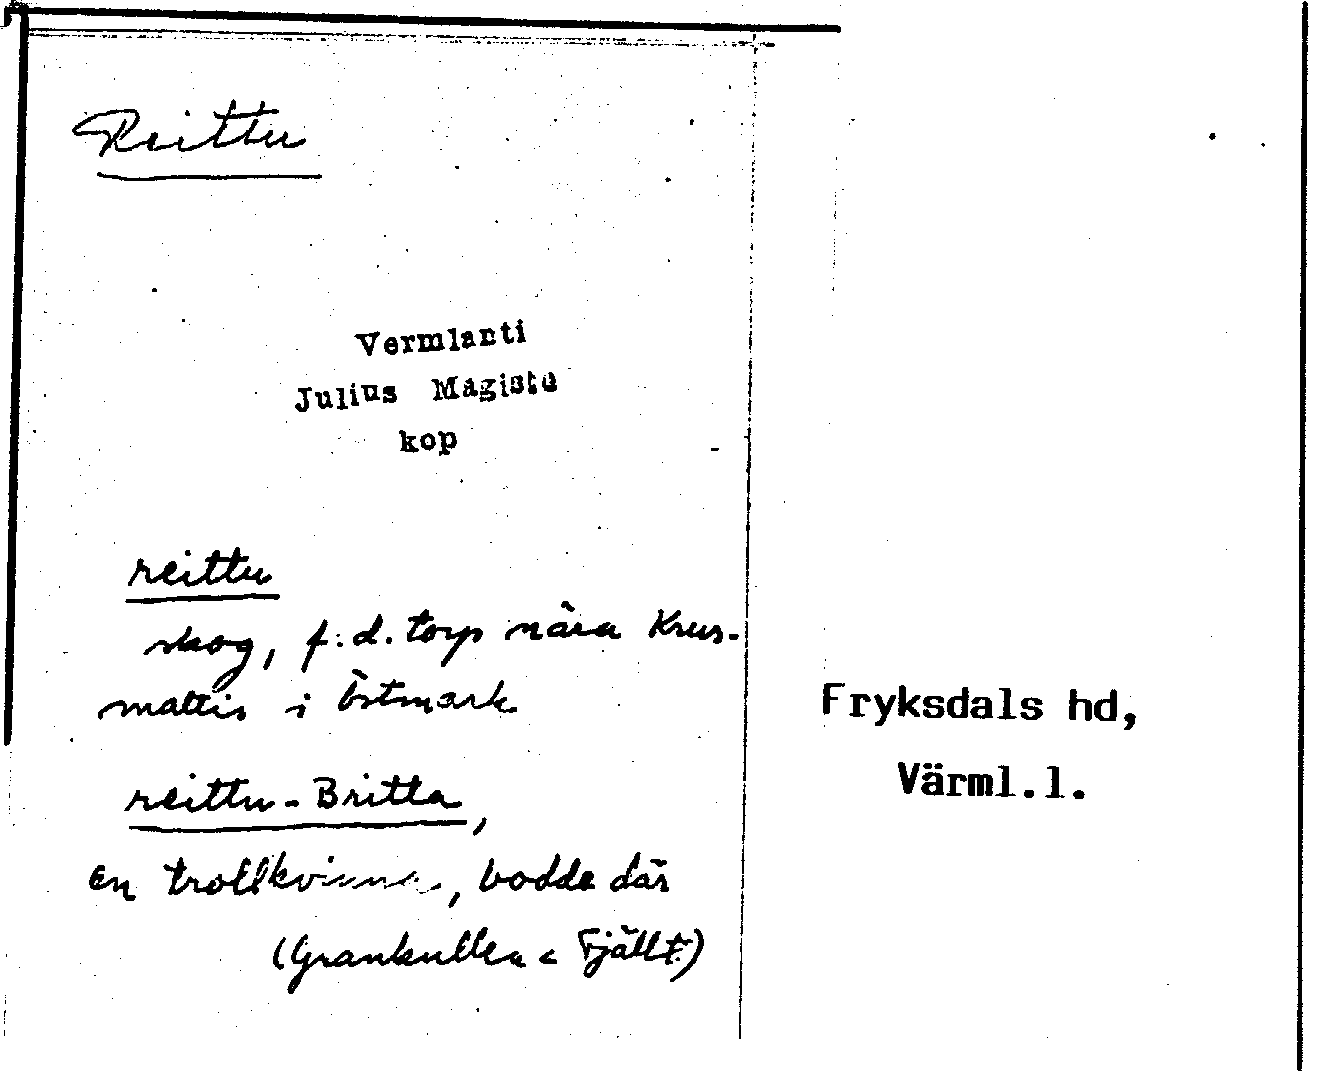 Reittu
Vermlanti
Julius Mägiste
kop
reittu
skog, f.d. torp nära Krus-
mattis i Östmark
reittu-Britta,
en trollkvinna, bodde där
(Grankullen < Fjällt.)
Fryksdals hd,
Värml.l.